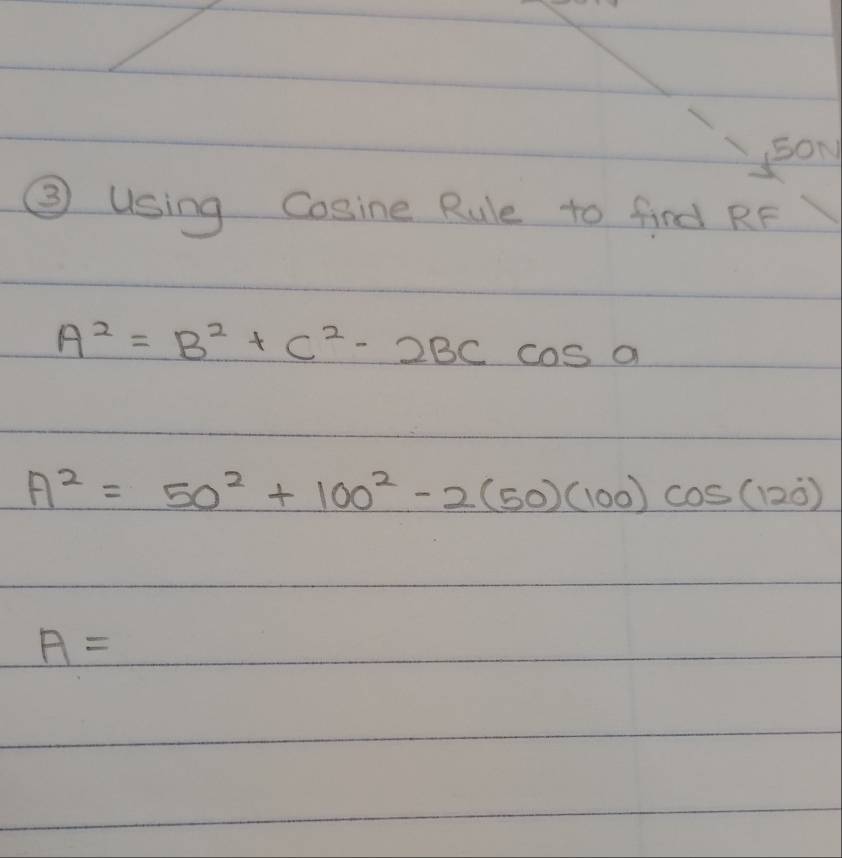 50N
③ Using Cosine Rule to find RF
A² = B² + C² - 2BC cos a
A² = 50² + 100² - 2(50)(100) cos(120°)
A =